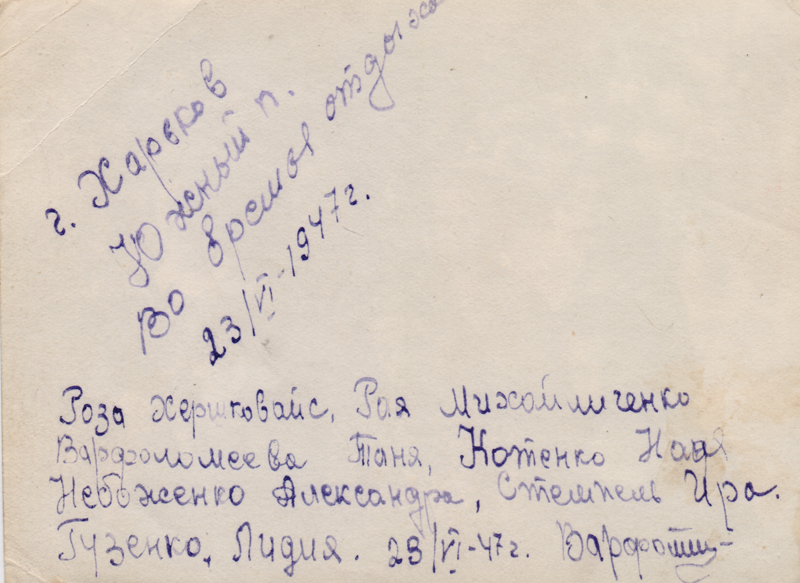 г. Харьков
Южный п.
Во время отдыха
23/VI-1947г.
Роза Хершковайс, Рая Михайличенко
Варфоломеева Таня, Котенко Надя
Небоженко Александра, Стемпель Ира.
Гузенко, Лидия. 23/VI-47г.